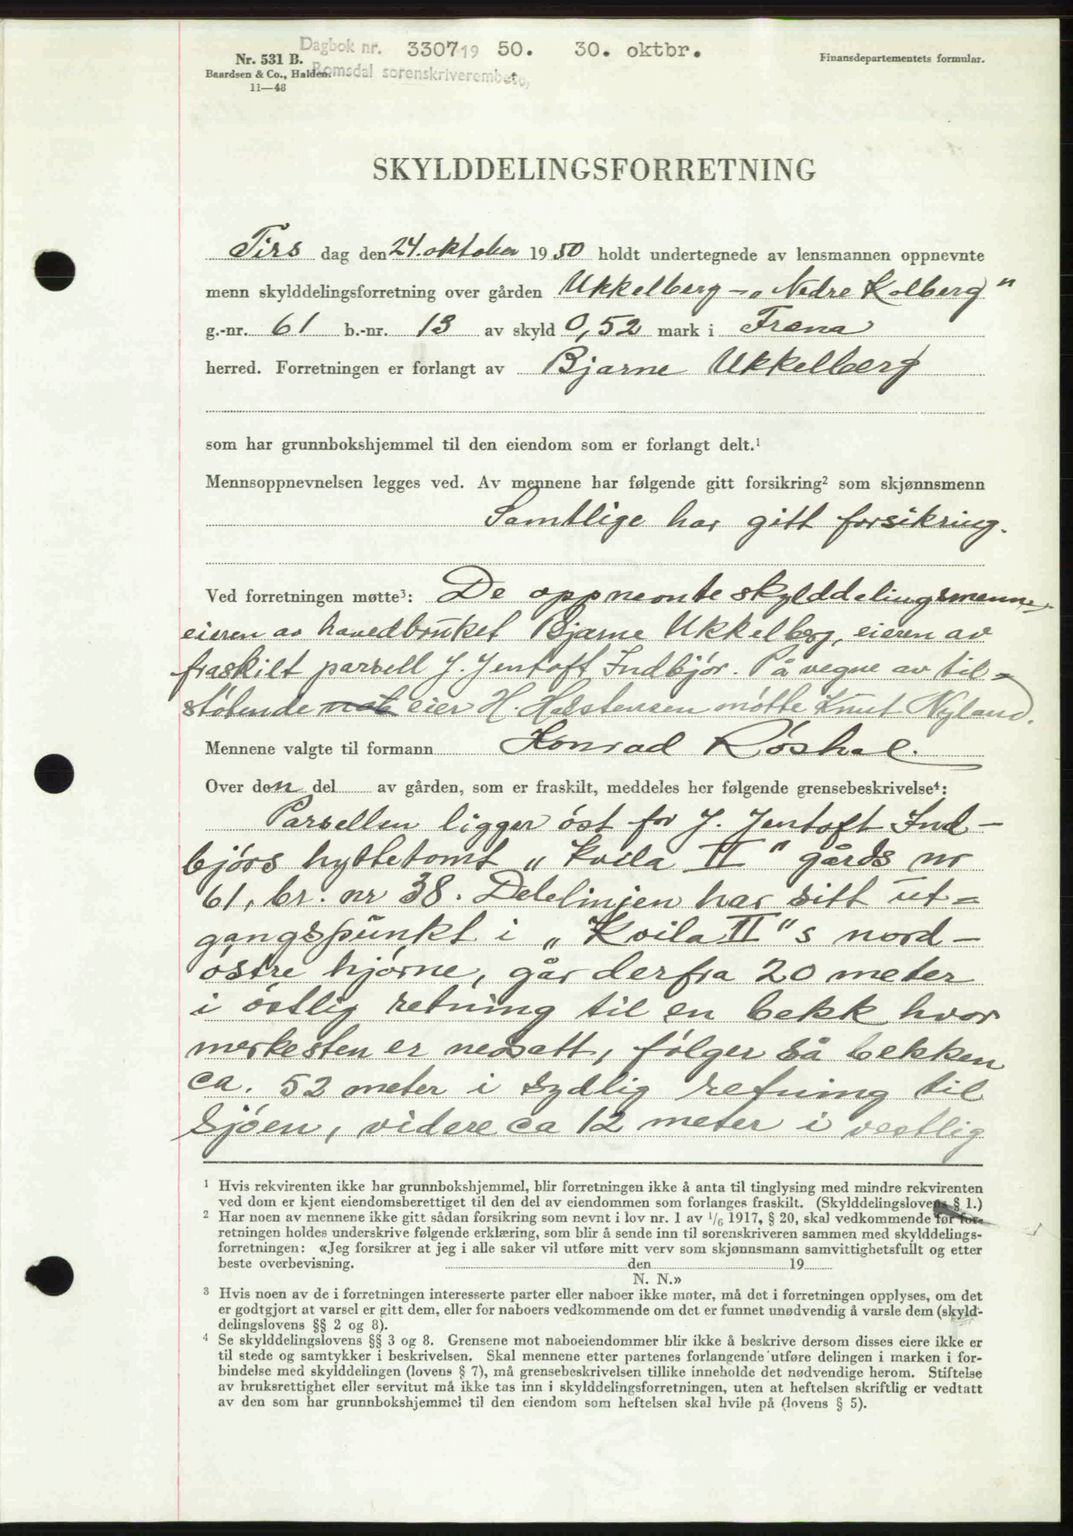 Dagbok nr. 3307 19 50. 30. oktbr.
Romsdal sorenskriverembete
Nr. 531 B.
Baardsen & Co., Halden.
11—48
Finansdepartementets formular.
SKYLDDELINGSFORRETNING
Tirs dag den 24. oktober 1950 holdt undertegnede av lensmannen oppnevnte
menn skylddelingsforretning over gården Ukkelberg - „Nedre Kolberg"
g.-nr. 61 b.-nr. 13 av skyld 0,52 mark i Fræna
herred. Forretningen er forlangt av Bjarne Ukkelberg
som har grunnbokshjemmel til den eiendom som er forlangt delt.¹
Mennsoppnevnelsen legges ved. Av mennene har følgende gitt forsikring² som skjønnsmenn
Samtlige har gitt forsikring.
Ved forretningen møtte³: De oppnevnte skylddelingsmenn,
eieren av hovedbruket Bjarne Ukkelberg, eieren av
fraskilt parsell J. Jentoft Indbjör. På vegne av til=
stötende eier H. Halstensen mötte Knut Nyland.
Mennene valgte til formann Konrad Röshol.
Over den del av gården, som er fraskilt, meddeles her følgende grensebeskrivelse⁴:
Parsellen ligger öst for J. Jentoft Ind-
björs hyttetomt „Kvila II" gårds nr
61, br. nr 38. Delelinjen har sitt ut=
gangspunkt i „Kvila II"s nord-
östre hjörne, går derfra 20 meter
i östlig retning til en bekk hvor
merkesten er nedsatt, fölger så bekken
ca. 52 meter i sydlig retning til
Sjöen, videre ca 12 meter i vestlig
¹ Hvis rekvirenten ikke har grunnbokshjemmel, blir forretningen ikke å anta til tinglysing med mindre rekvirenten
ved dom er kjent eiendomsberettiget til den del av eiendommen som forlanges fraskilt. (Skylddelingslovens § 1.)
² Har noen av mennene ikke gitt sådan forsikring som nevnt i lov nr. 1 av ¹/₆ 1917, § 20, skal vedkommende før for-
retningen holdes underskrive følgende erklæring, som blir å sende inn til sorenskriveren sammen med skylddelings-
forretningen: «Jeg forsikrer at jeg i alle saker vil utføre mitt verv som skjønnsmann samvittighetsfullt og etter
beste overbevisning. den 19
N. N.»
³ Hvis noen av de i forretningen interesserte parter eller naboer ikke møter, må det i forretningen opplyses, om det
er godtgjort at varsel er gitt dem, eller for naboers vedkommende om det er funnet unødvendig å varsle dem (skyld-
delingslovens §§ 2 og 8).
⁴ Se skylddelingslovens §§ 3 og 8. Grensene mot naboeiendommer blir ikke å beskrive dersom disses eiere ikke er
til stede og samtykker i beskrivelsen. Skal mennene etter partenes forlangende utføre delingen i marken i for-
bindelse med skylddelingen (lovens § 7), må grensebeskrivelsen tillike inneholde det nødvendige herom. Stiftelse
av bruksrettighet eller servitut må ikke tas inn i skylddelingsforretningen, uten at heftelsen skriftlig er vedtatt
av den som har grunnbokshjemmel til den eiendom som heftelsen skal hvile på (lovens § 5).